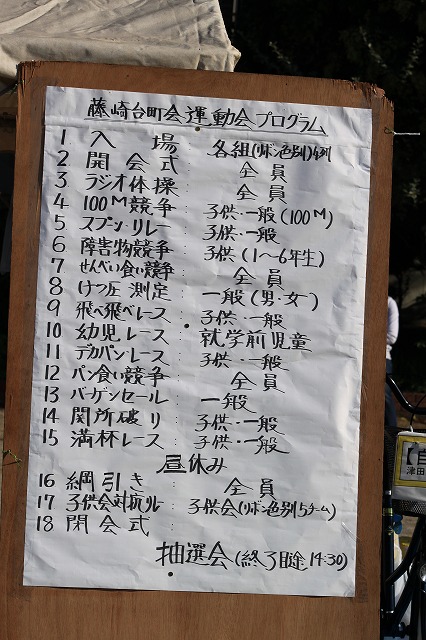 藤崎台町会運動会プログラム
1 入場 : 各組(リボン色別)4列
2 開会式 : 全員
3 ラジオ体操 : 全員
4 100M競争 : 子供・一般(100M)
5 スプーンリレー : 子供・一般
6 障害物競争 : 子供(1〜6年生)
7 せんべい食い競争 : 全員
8 けつ圧測定 : 一般(男・女)
9 飛べ飛べレース : 子供・一般
10 幼児レース : 就学前児童
11 デカパンレース : 子供・一般
12 パン食い競争 : 全員
13 バーゲンセール : 一般
14 関所破り : 子供・一般
15 満林レース : 子供・一般
昼休み
16 綱引き : 全員
17 子供会対抗リレー : 子供会(リボン色別5チーム)
18 閉会式 :
抽選会(終了目途14:30)
津田